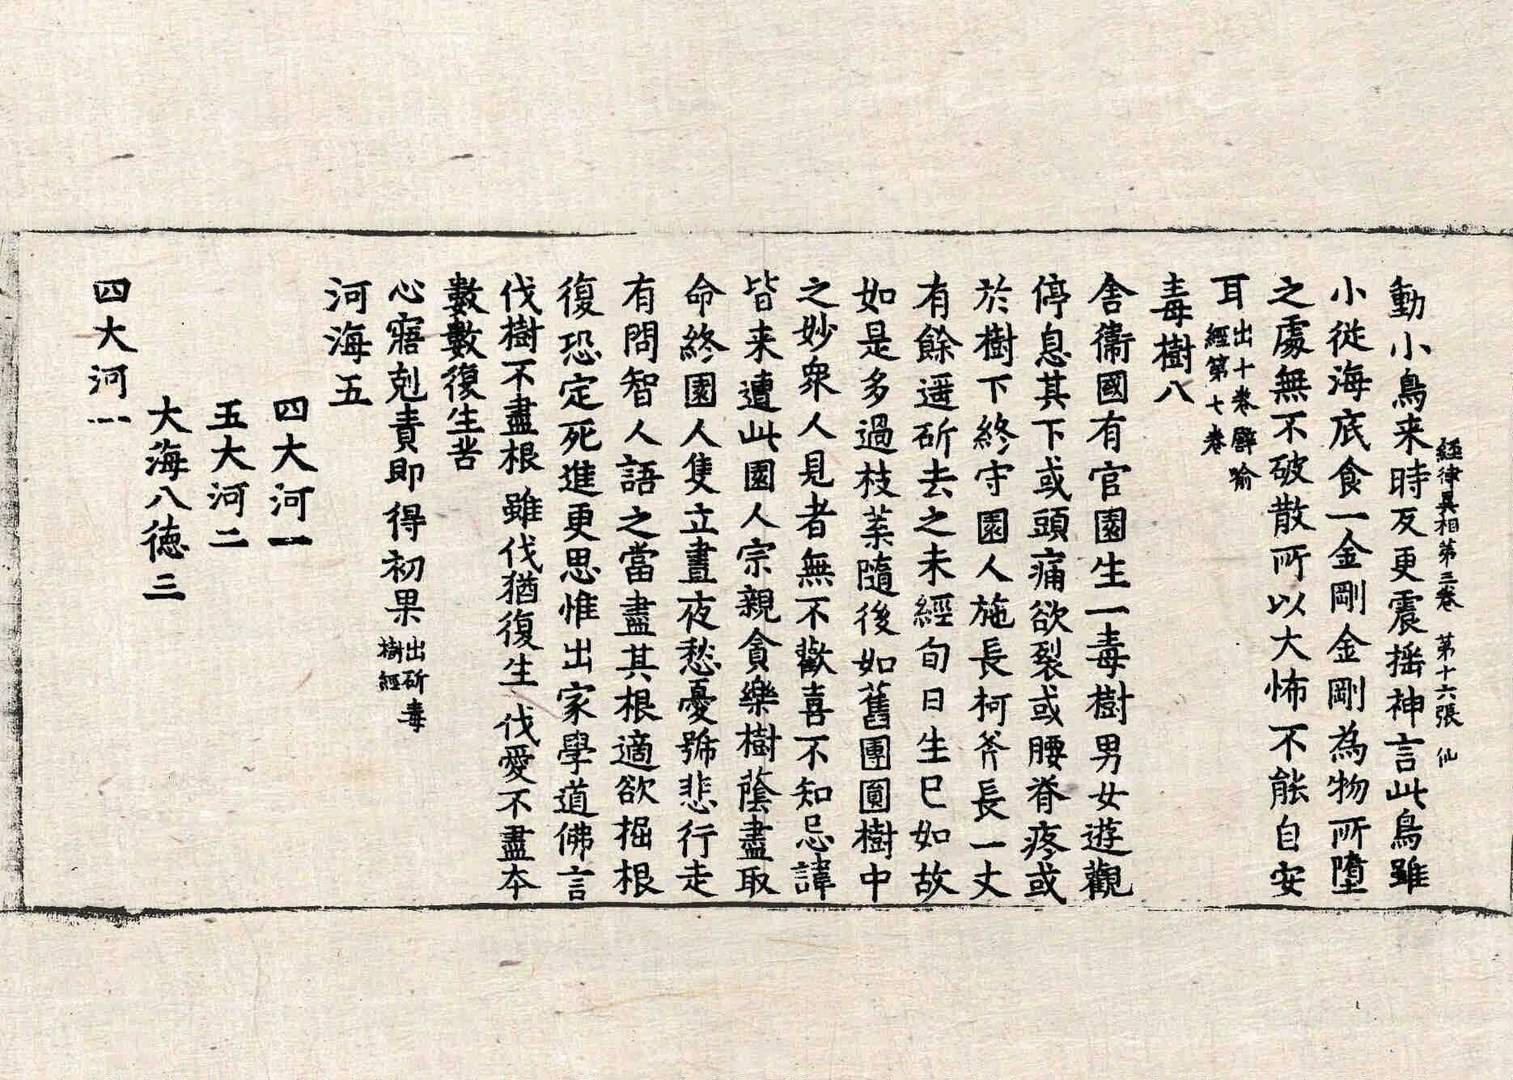 經律異相第三卷　第十六張　仙
動小鳥来時反更震摇神言此鳥雖
小從海底食一金剛金剛為物所墮
之處無不破散所以大怖不能自安
耳出十卷譬喻經第七卷
毒樹八
舎衛國有官園生一毒樹男女遊觀
停息其下或頭痛欲裂或腰脊疼或
於樹下終守園人施長柯斧長一丈
有餘遥斫去之未經旬日生已如故
如是多過枝葉隨後如舊團圓樹中
之妙衆人見者無不歡喜不知忌諱
皆来遭此園人宗親貪樂樹蔭盡取
命終園人隻立晝夜愁憂號悲行走
有問智人語之當盡其根適欲掘根
復恐定死進更思惟出家學道佛言
伐樹不盡根雖伐猶復生伐愛不盡夲
數數復生苦
心寤剋責即得初果出斫毒樹經
河海五
四大河一
五大河二
大海八徳三
四大河一